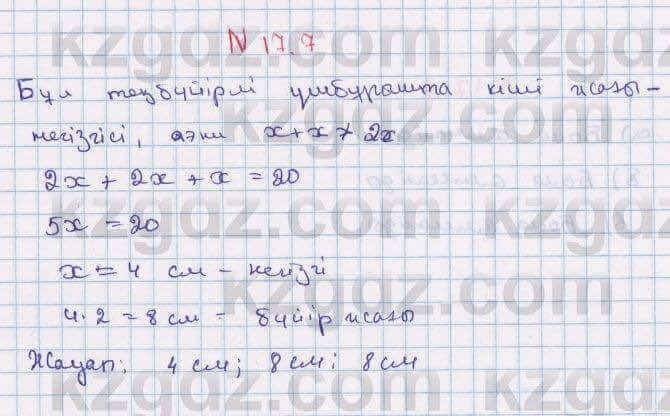 N 17.7
Бұл теңбүйірлі үшбұрышта кіші жағы-
негізгісі, яғни x+x≯2x
2x + 2x + x = 20
5x = 20
x = 4 см - негізгі
4·2 = 8 см - бүйір жағы
Жауап: 4 см; 8 см; 8 см
kzgdz.com